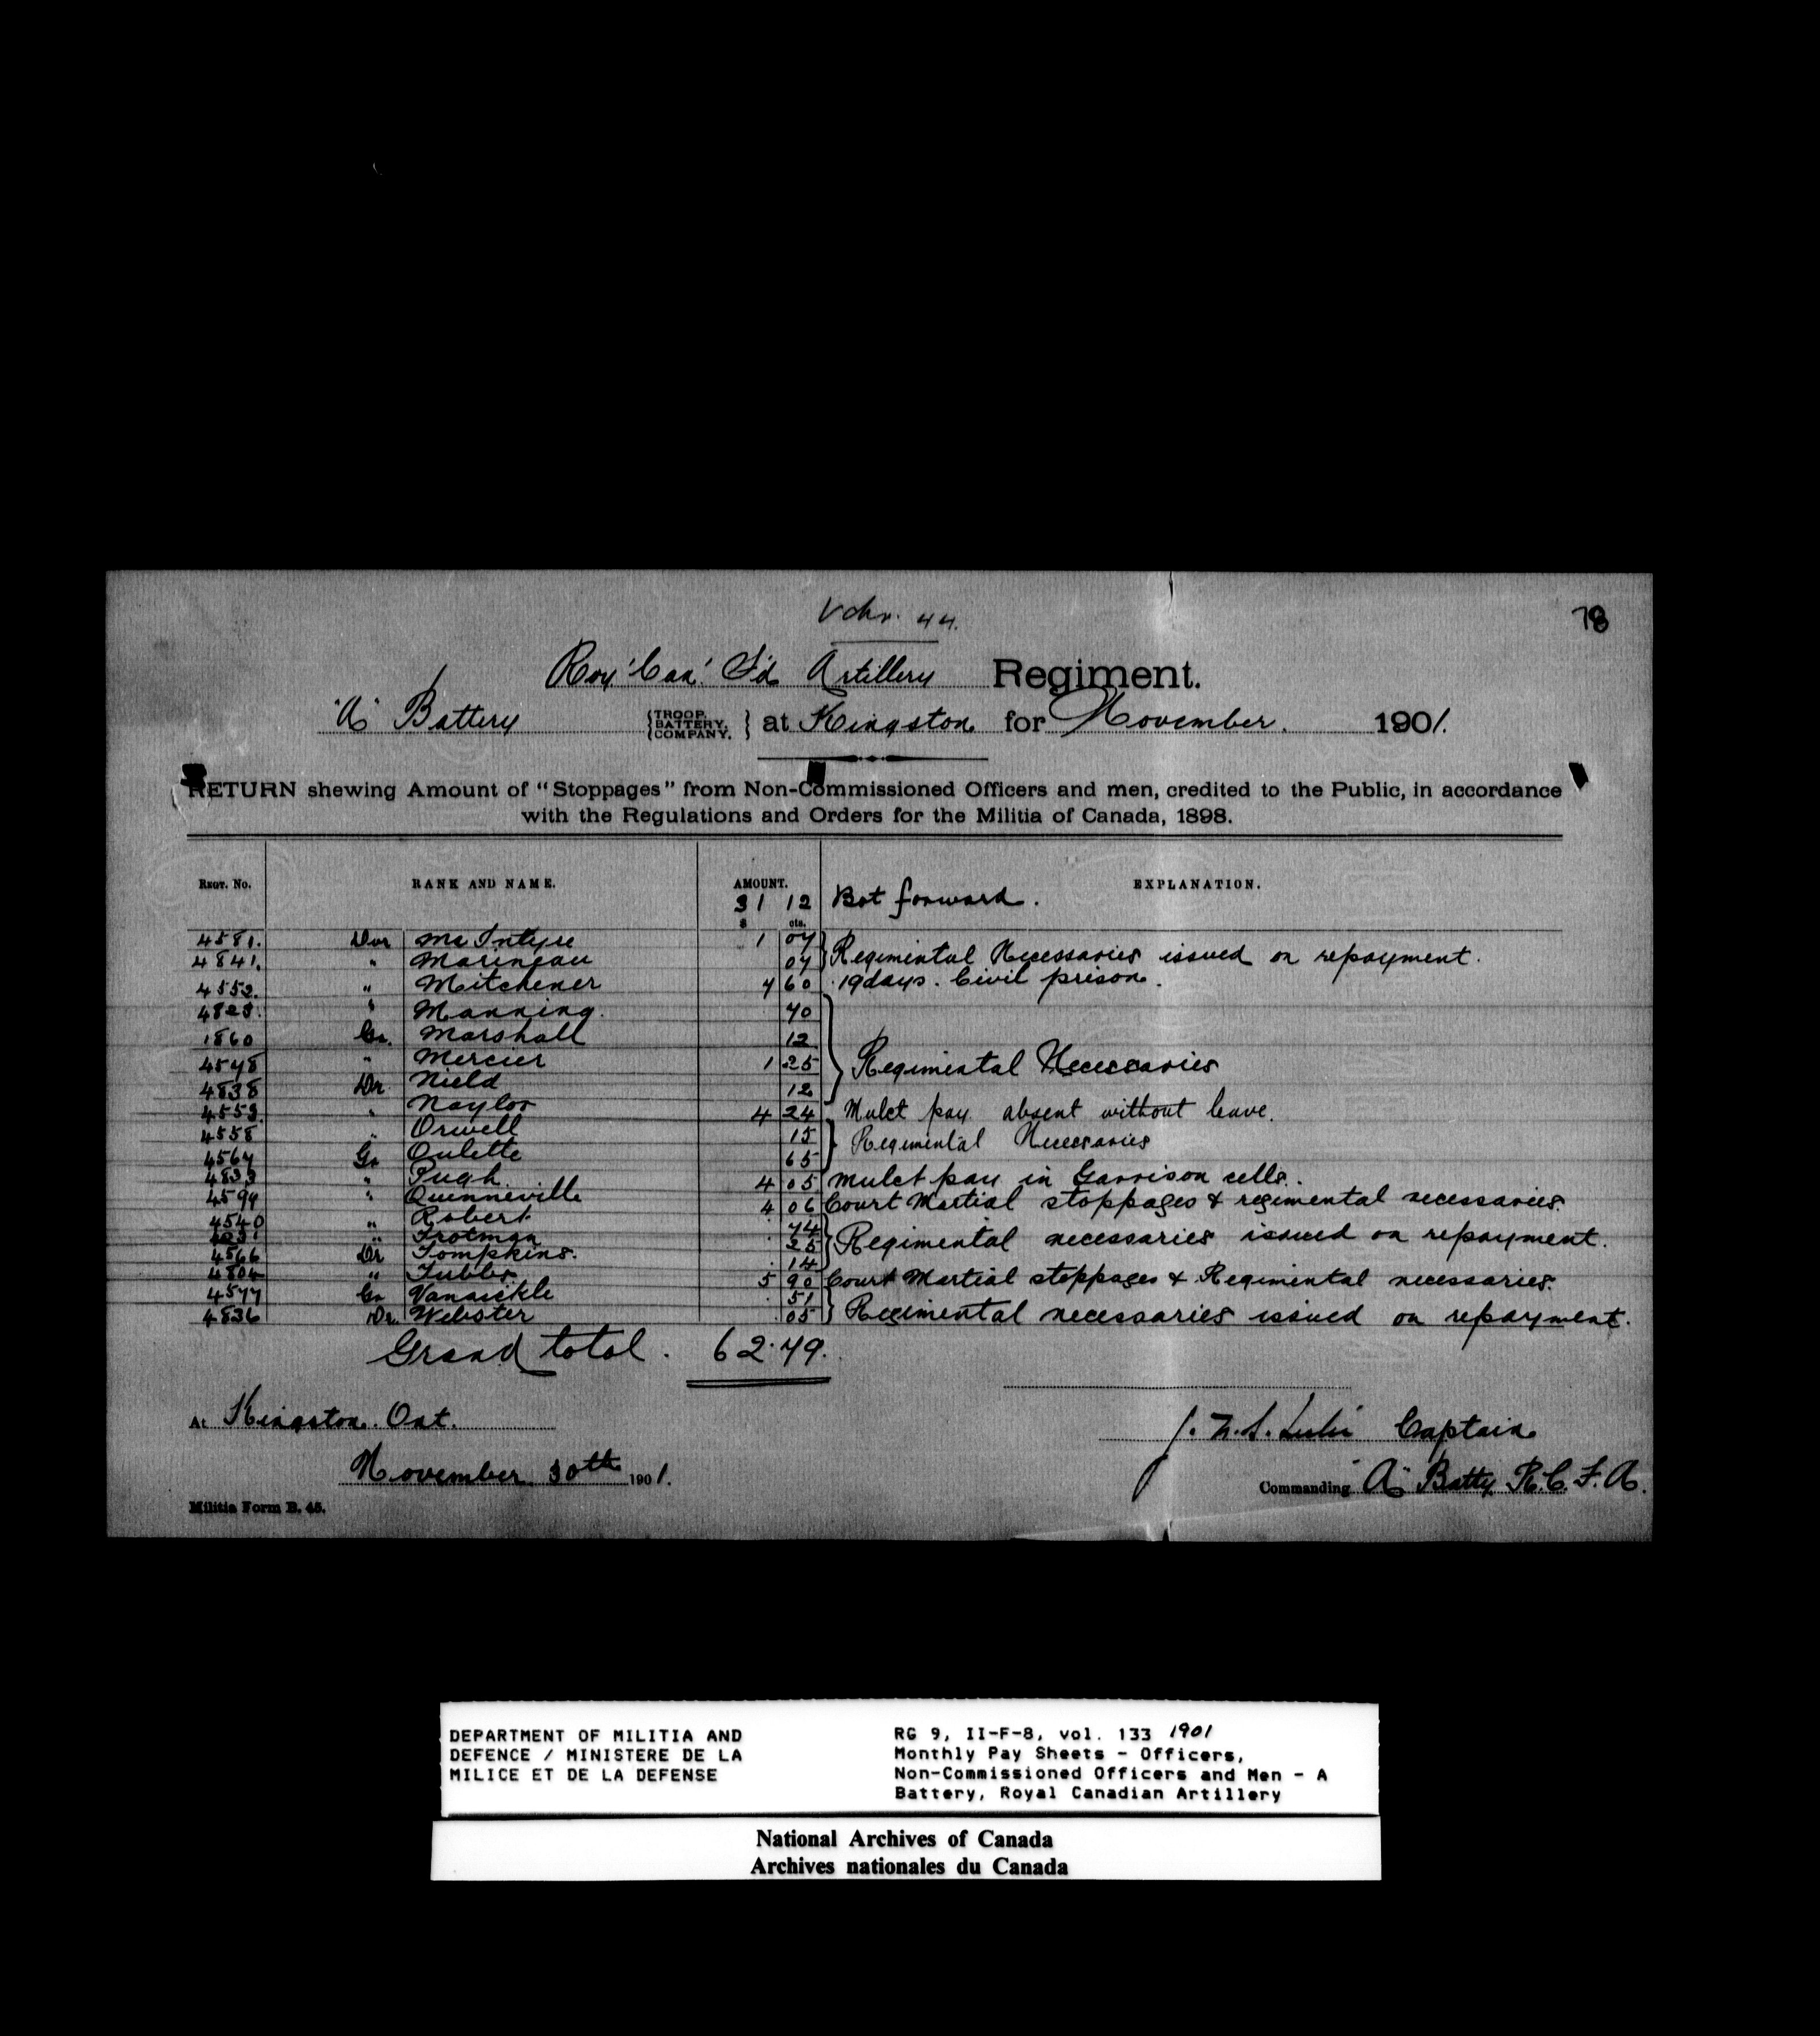 Vchr. 44.
78
Roy' Can' F'd Artillery Regiment.
"A" Battery {TROOP, BATTERY, COMPANY,} at Kingston for November. 1901.
RETURN shewing Amount of "Stoppages" from Non-Commissioned Officers and men, credited to the Public, in accordance
with the Regulations and Orders for the Militia of Canada, 1898.
REGT. NO. RANK AND NAME. AMOUNT. EXPLANATION.
31 12 Bot forward.
$ cts.
4581. Dvr McIntyre 1 07 } Regimental Necessaries issued on repayment.
4841. " Marineau 07
4552. " Mitchener 7 60 19 days. Civil prison.
4828. " Manning. 70
1860 Gr. Marshall 12
4578 " Mercier 1 25 } Regimental Necessaries
4838 Dr. Nield 12
4553. " Naylor 4 24 Mulct pay absent without leave.
4558 " Orwell 15 } Regimental Necessaries
4567 Gr Oulette 65
4833 " Pugh. 4 05 Mulct pay in Garrison cells.
4599 " Quinneville 4 06 Court Martial stoppages & regimental necessaries.
4540 " Robert 74
" Trotman 25 } Regimental necessaries issued on repayment.
4566 Dr Tompkins. 14
4804 " Tubbs 5 90 Court Martial stoppages & Regimental necessaries.
4577 Gr Vansickle 51
4836 Dr. Webster 05 } Regimental necessaries issued on repayment.
Grand total. 62.79.
At Kingston. Ont.
J. N. S. Leslie Captain
November 30th 1901.
Commanding "A" Batty R.C.F.A.
Militia Form B. 45.
DEPARTMENT OF MILITIA AND
DEFENCE / MINISTERE DE LA
MILICE ET DE LA DEFENSE
RG 9, II-F-8, vol. 133 1901
Monthly Pay Sheets - Officers,
Non-Commissioned Officers and Men - A
Battery, Royal Canadian Artillery
National Archives of Canada
Archives nationales du Canada